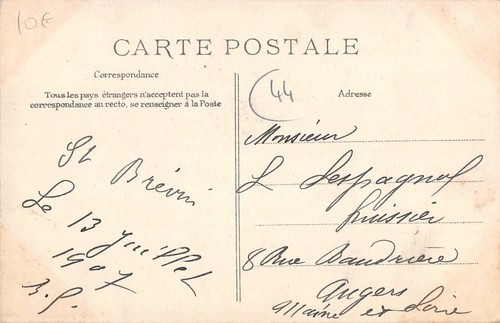 10€
CARTE POSTALE
Correspondance
Tous les pays étrangers n'acceptent pas la
correspondance au recto, se renseigner à la Poste
44
Adresse
St Brévin
Le 13 Juillet
1907
Monsieur
L Lespagnol
huissier
8 Rue Baudrière
Angers
Maine et Loire